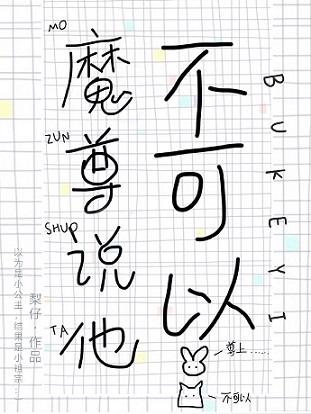 MO
魔
ZUN
尊
SHUO
说
TA
他
不可以
BUKEYI
尊上……
不可以
梨仔·作品
以为是小公主，结果是小祖宗…